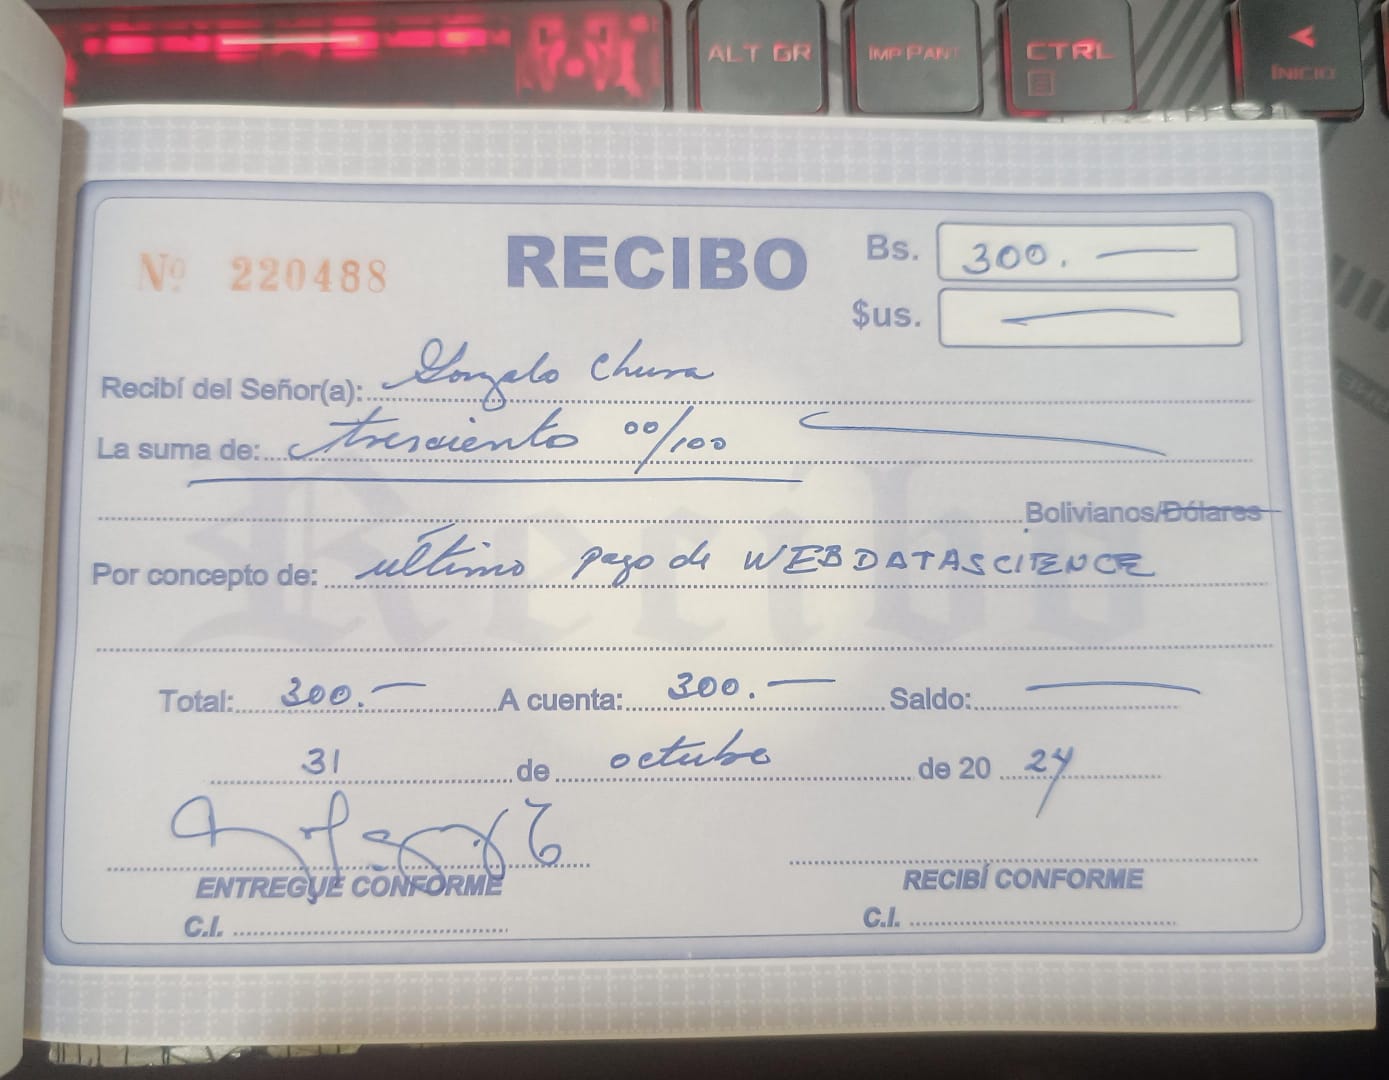 ALT GR
IMP PANT
CTRL
INICIO
Nº 220488
RECIBO
Bs. 300.
$us.
Recibí del Señor(a): Gonzalo Chura
La suma de: tresciento 00/100
Bolivianos/Dólares
Por concepto de: último pago de WEBDATASCIENCE
Total: 300. A cuenta: 300. Saldo:
31 de octubre de 20 24
ENTREGUE CONFORME
RECIBÍ CONFORME
C.I.
C.I.